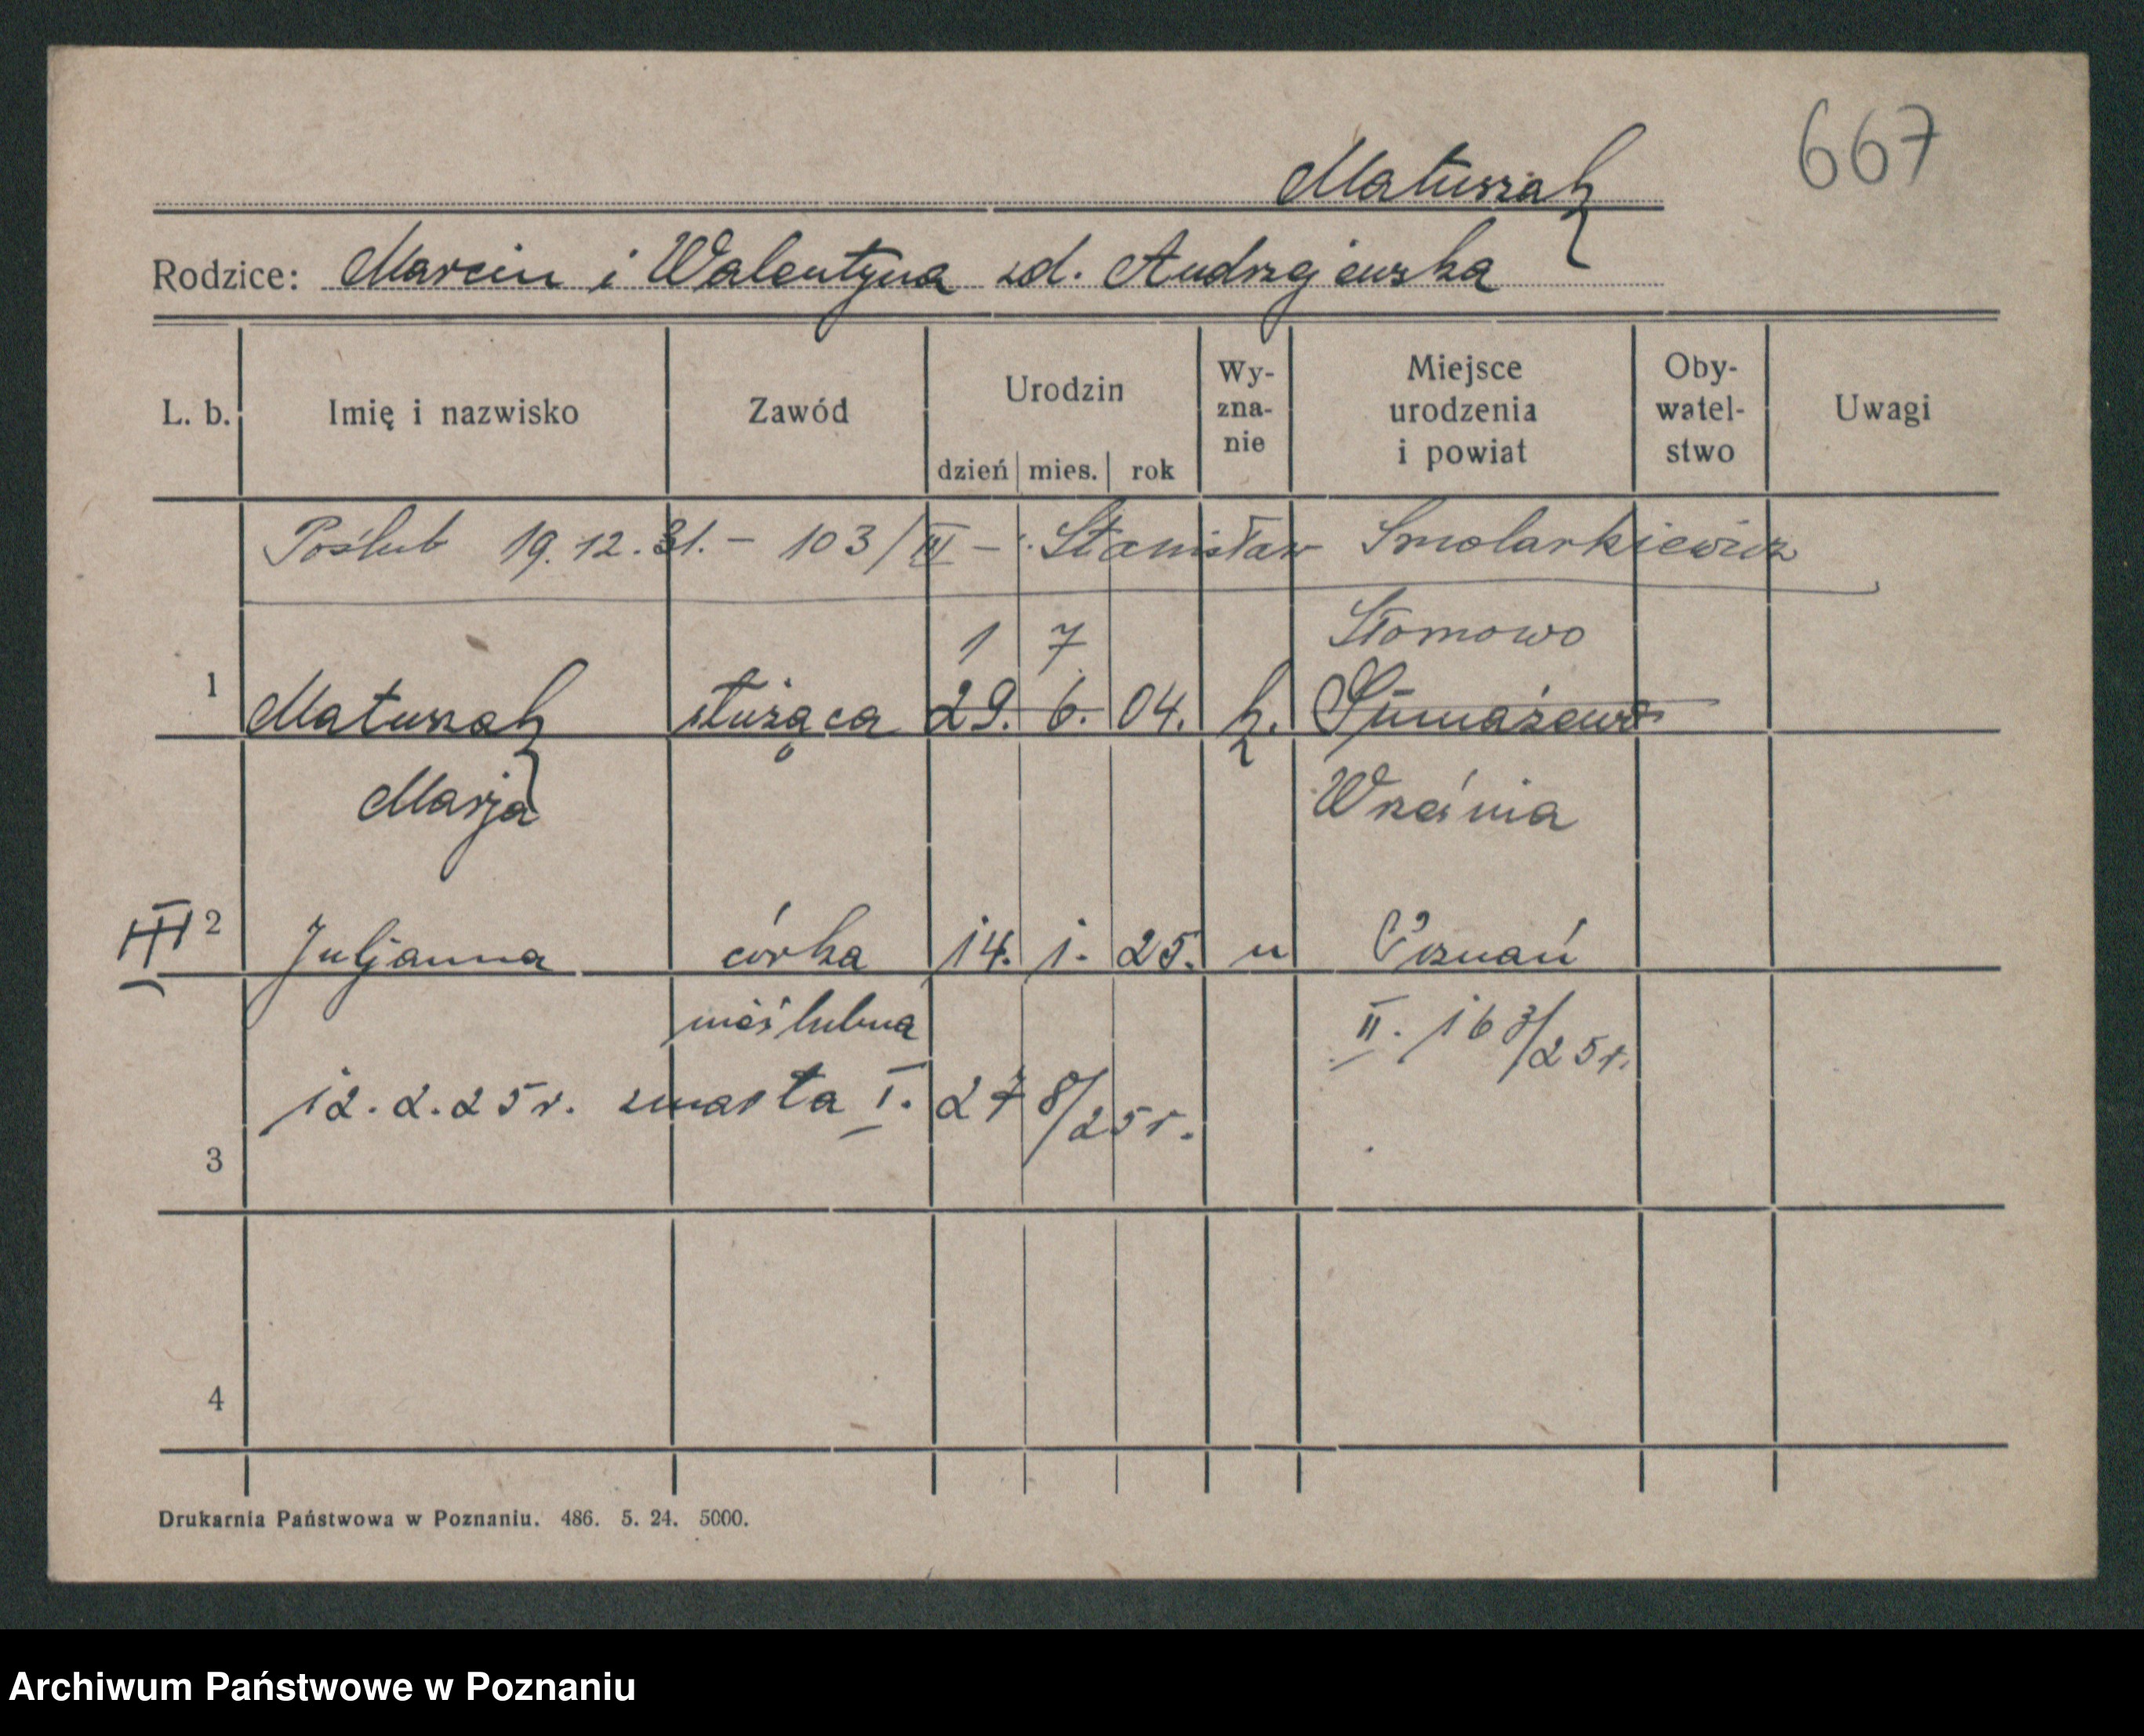 667
Matuszak
Rodzice: Marcin i Walentyna zd. Andrzejewska
L. b. Imię i nazwisko Zawód Urodzin dzień mies. rok Wy-zna-nie Miejsce urodzenia i powiat Oby-watel-stwo Uwagi
Poślub 19.12.31. – 103/III – Stanisław Smolarkiewicz
1 7 Słomowo
1 Matuszak służąca 29. 6. 04. k.
Marja Września
2 Juljanna córka 14. 1. 25. " Poznań
nieślubna II. 163/25r.
12.2.25r. zmarła I. 278/25r.
3
4
Drukarnia Państwowa w Poznaniu. 486. 5. 24. 5000.
Archiwum Państwowe w Poznaniu